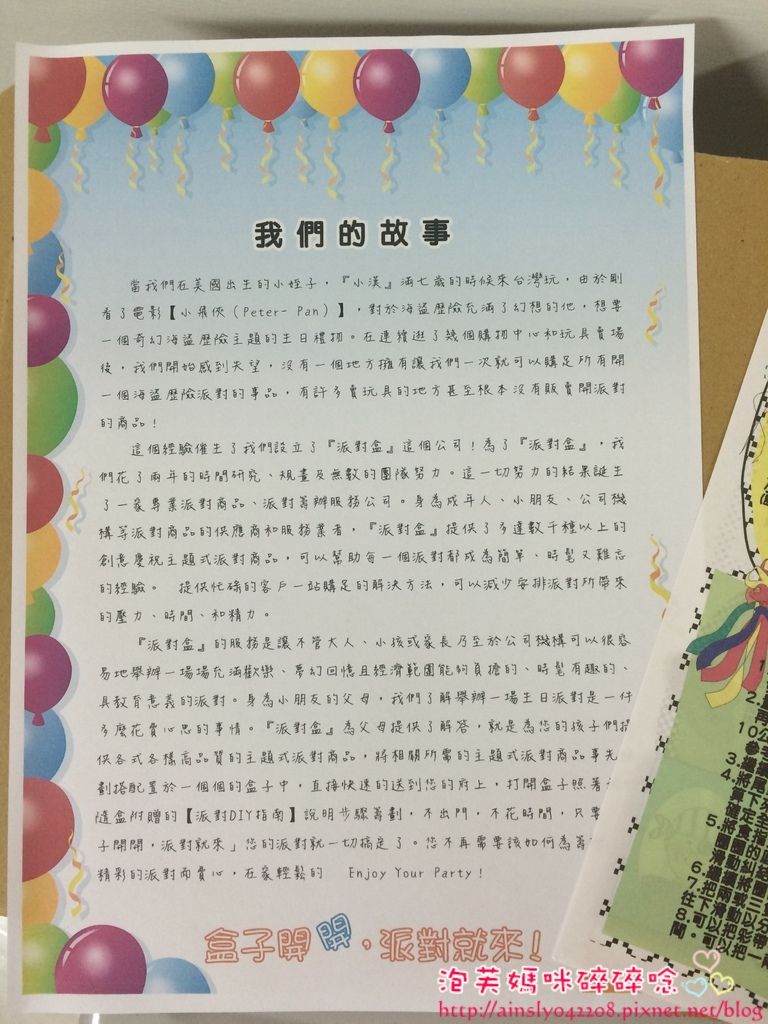 我們的故事
當我們在美國出生的小姪子，『小漢』滿七歲的時候來台灣玩，由於剛
看了電影【小飛俠（Peter- Pan）】，對於海盜歷險充滿了幻想的他，想要
一個奇幻海盜歷險主題的生日禮物。在連續逛了幾個購物中心和玩具賣場
後，我們開始感到失望，沒有一個地方擁有讓我們一次就可以購足所有開
一個海盜歷險派對的事品，有許多賣玩具的地方甚至根本沒有販賣開派對
的商品！
這個經驗催生了我們設立了『派對盒』這個公司！為了『派對盒』，我
們花了兩年的時間研究、規畫及無數的團隊努力。這一切努力的結果誕生
了一家專業派對商品、派對籌辦服務公司。身為成年人、小朋友、公司機
構等派對商品的供應商和服務業者，『派對盒』提供了多達數千種以上的
創意慶祝主題式派對商品，可以幫助每一個派對都成為簡單、時髦又難忘
的經驗。 提供忙碌的客戶一站購足的解決方法，可以減少安排派對所帶來
的壓力、時間、和精力。
『派對盒』的服務是讓不管大人、小孩或家長乃至於公司機構可以很容
易地舉辦一場場充滿歡樂、夢幻回憶且經濟範圍能夠負擔的、時髦有趣的、
具教育意義的派對。身為小朋友的父母，我們了解舉辦一場生日派對是一件
多麼花費心思的事情。『派對盒』為父母提供了解答，就是為您的孩子們提
供各式各樣高品質的主題式派對商品，將相關所需的主題式派對商品事先
劃搭配置於一個個的盒子中，直接快速的送到您的府上，打開盒子照著
隨盒附贈的【派對DIY指南】說明步驟籌劃，不出門，不花時間，只要
子開開，派對就來」您的派對就一切搞定了。您不再需要該如何為籌
精彩的派對而費心，在家輕鬆的 Enjoy Your Party！
盒子開開，派對就來！
泡芙媽咪碎碎唸
http://ainsly042208.pixnet.net/blog